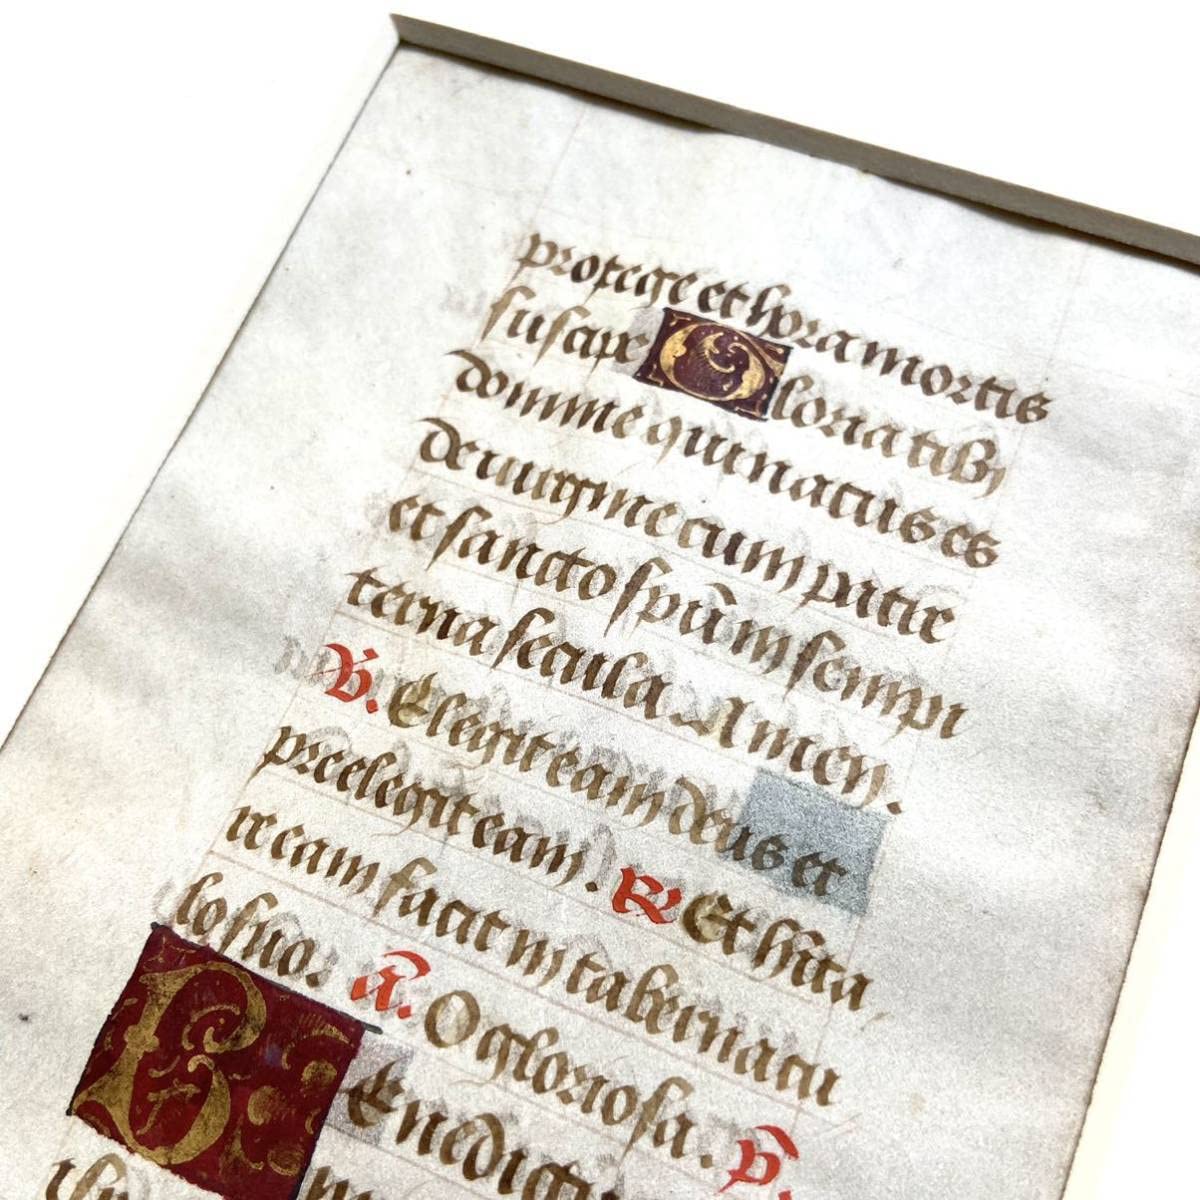 protege et hora mortis
suscipe Gloria tibi
domine qui natus es
de virgine cum patre
et sancto spũ in sempi
terna secula. Amen.
V. Elegit eam deus et
preelegit eam. R Et hita
re eam facit in tabernacu
lo suo. A. O gloriosa. p̃.
Benedict